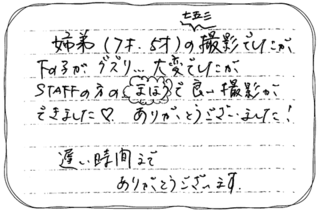 七五三
姉弟(7才、5才)の撮影でしたが
下の子が グズリ…大変でしたが
STAFFの方の まほうで良い撮影が
できました♡ ありがとうございました!
遅い時間まで
ありがとうございます。